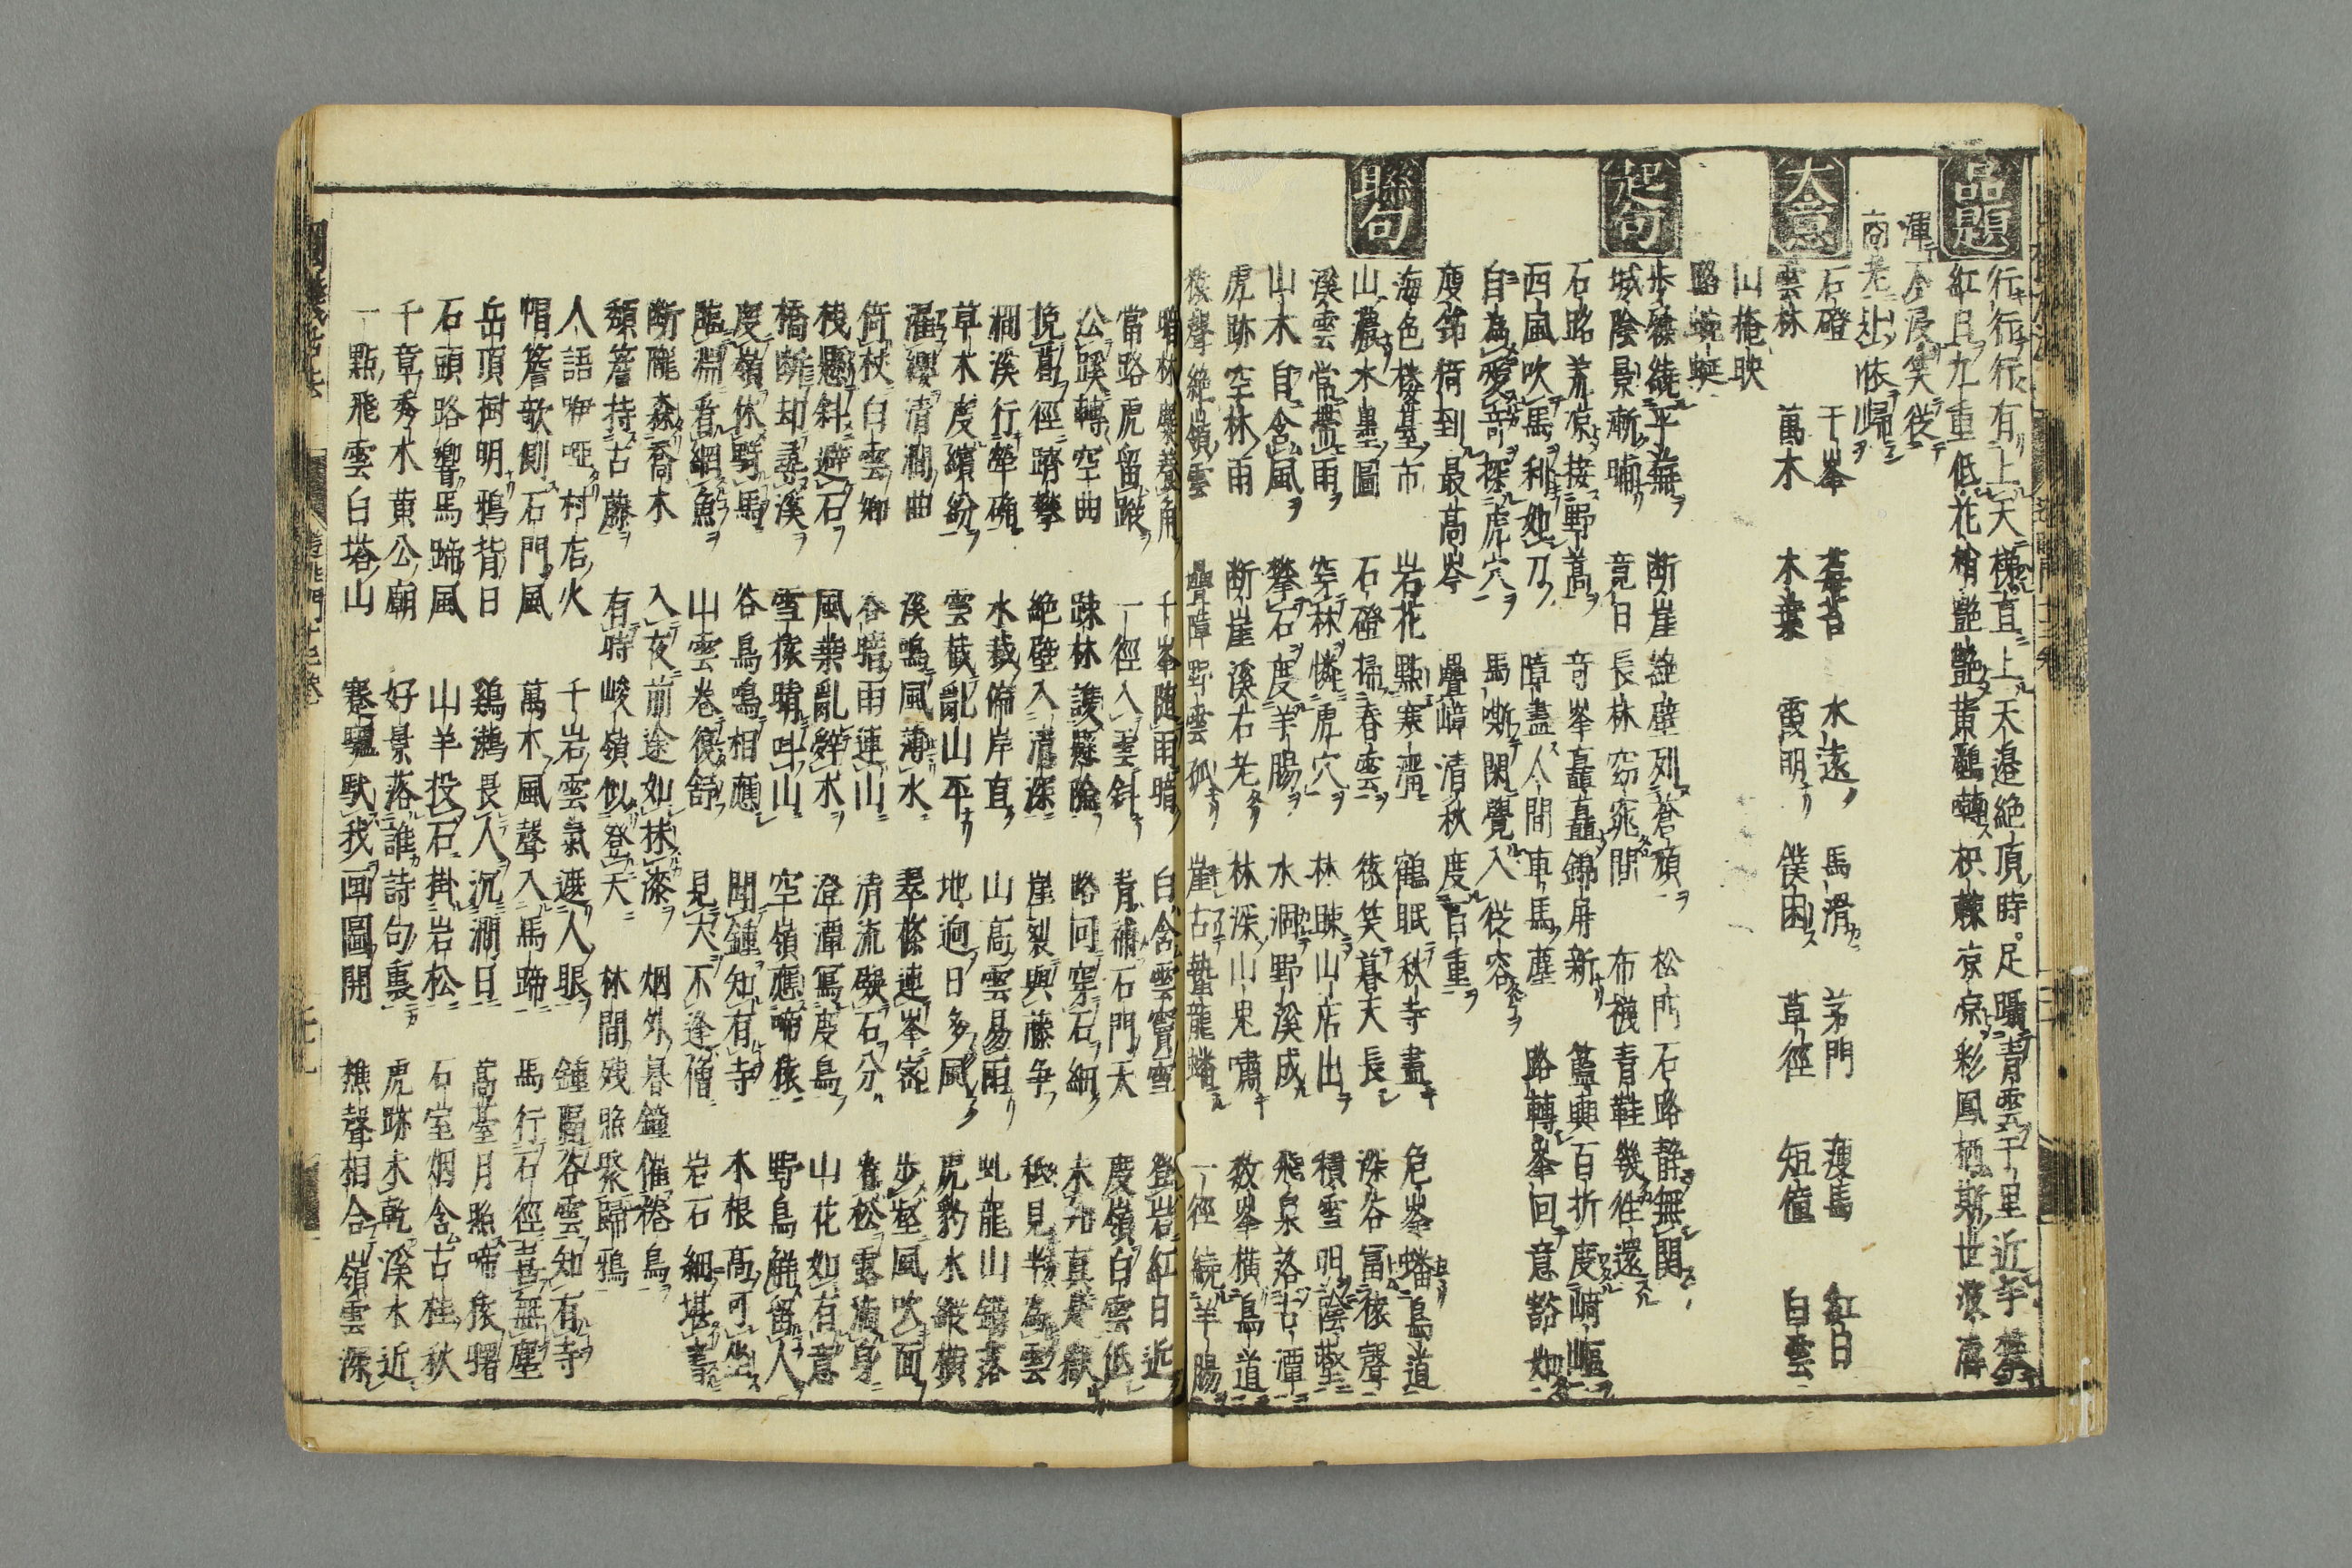 品題
行行行有上天梯直上天邊絶頂時足躡青雲千里近手攀
紅日九重低花梢艶艶黄鸝轉枳棘京京彩鳳栖斯世
渾
商老
依歸
大意
石磴 千峯 莓苔 水遠 馬滑 茅門 瘦馬 紅白
雲林 萬木 木葉 霞明 僕困 草徑 短
白雲
山掩映
路蜿蜒
起句
歩繞平蕪 断崖 壁列蒼顔 松門石路静無関
城陰景漸晡 竟日長林窈窕間 布襪青鞋幾往還
石路荒凉接野蒿 竒峯矗矗錦屏新 藍輿百折度崎嶇
西風吹馬利如刀 嶂盡人間車馬塵 路轉峯回意豁如
自為愛竒探虎穴 馬嘶閑覺入從容
瘦筇猗到最髙岑 疊嶂清秋度百重
聯句
海色楼䑓市 岩花點寒溜 鶴眠秋寺盡 危峯蟠鳥道
山農水墨圖 石磴掃春雲 猿笑暮天長 深谷冨猿聲
溪雲常帯雨 穿林憐虎穴 林踈山店出 積雪明陰壑
山木自含風 攀石度羊腸 水涸野溪成 飛泉落古潭
虎跡空林雨 断崖溪右老 林深山鬼嘯 数峯横鳥道
猿聲絶嶺雲 疊障野雲孤 崖古蟄龍蟠 一徑繞羊腸
暗林麋養角 千峯随雨暗 白含雲竇雪 登岩紅日近
當路虎留蹤 一徑入雲斜 青補石門天 度嶺白雲低
公蹊轉空曲 踈林護懸險 路回穿石細
捫葛徑躋攀 絶壁入清深 崖裂與藤争 秪見半為雲
澗溪行犖确 水裁偏岸直 山髙雲易雨 虬龍山錯落
草木度繽紛 雲截亂山平 地逈日多風 虎豹水縦横
濯纓清澗曲 溪鳴風薄水 翠條連峯密 歩壑風吹面
倚杖白雲郷 谷暗雨連山 清流礙石分 看松露滴身
栈懸斜避石 風葉亂辞木 澄潭寫度鳥 山花如有意
橋断却尋溪 雪猿晴叫山 空嶺應啼猿 野鳥解留人
度嶺休騎馬 谷鳥鳴相應 聞鍾知有寺 木根髙可坐
臨淵看網魚 山雲巻復舒 見犬不逢僧 岩石細堪書
断隴森喬木 入夜前途如抹漆 烟外暮鐘催倦鳥
頽簷持古藤 有時峻嶺似登天 林間残照聚歸鴉
人語咿啞村店火 千岩雲氣遮人眼 鍾留谷雲知有寺
帽簷欹側石門風 萬木風聲入馬蹄 馬行石徑喜無塵
岳頂樹明鴉背日 鷄鶿畏人沉澗日 髙䑓月照啼猿曙
石頭路響馬蹄風 山羊投石掛岩松 石室烟含古桂秋
千章秀木黄公廟 好景落誰詩句裏 虎跡未乾溪水近
一點飛雲白塔山 蹇驢駄我畫圖開 樵聲相合嶺雲深